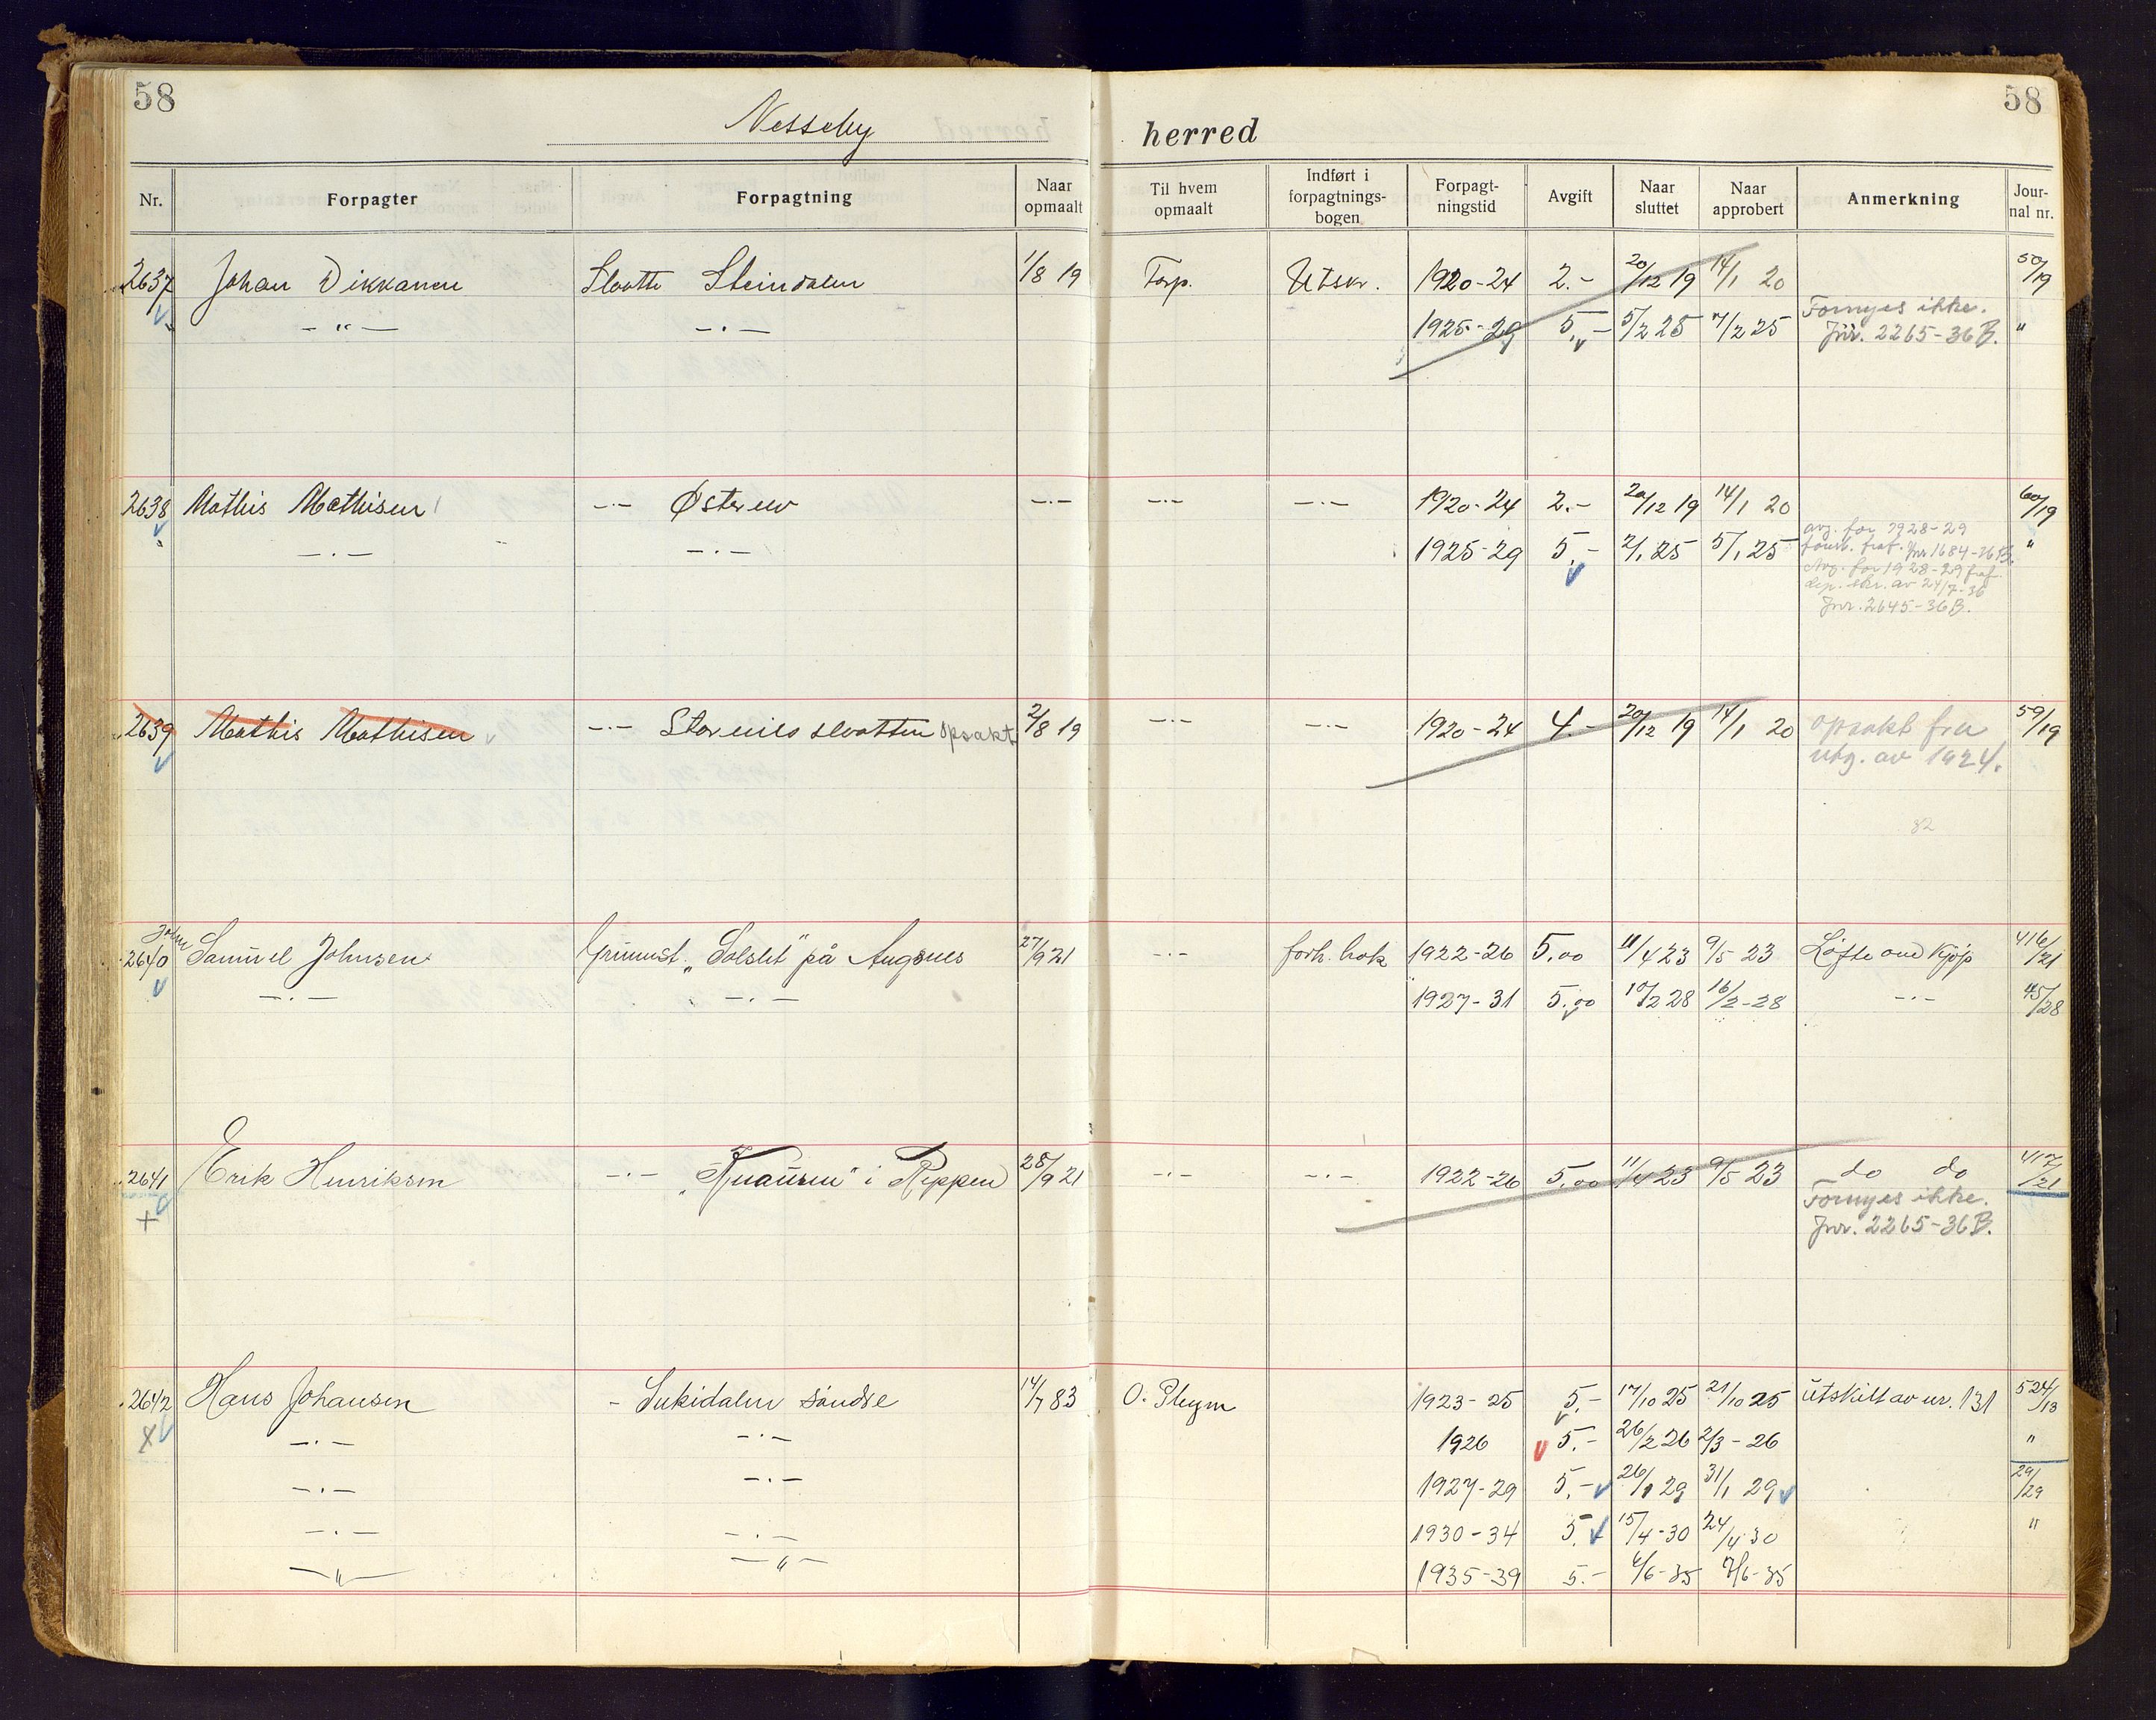 58
58
Nesseby herred
Nr. Forpagter Forpagtning Naar opmaalt Til hvem opmaalt Indført i forpagtnings-bogen Forpagt-ningstid Avgift Naar sluttet Naar approbert Anmerkning Jour-nal nr.
2637 Johan Dikkanen Slaatte Steindalen 1/8 19 Torp. Utskr. 1920-24 2.- 20/12 19 14/1 20 50/19
" -"- -.- 1925-29 5,- 5/2 25 7/2 25 Fornyes ikke. "
Jnr. 2265-36 B.
2638 Mathis Mathisen -.- Østerelv -.- -.- -.- 1920-24 2.- 20/12 19 14/1 20 60/19
" -.- -.- 1925-29 5,- 2/1 25 5/1 25 avg. for 1928-29 "
forsk. fraf. Jnr 1684-36 B.
Avg. for 1928-29 fraf.
dep. skr. av 24/7-36
Jnr. 2645-36 B.
2639 Mathis Mathisen -.- Storenilsslaatten opsakt 2/8 19 -.- -.- 1920-24 4.- 20/12 19 14/1 20 opsakt fra 59/19
utg. av 1924.
82
John
2640 Samuel Johnsen Grunnst. "Solslet" på Angsnes 27/9 21 -.- forh. bok 1922-26 5.00 11/4 23 9/5 23 Løfte om kjøp 416/21
-.- -.- 1927-31 5.00 10/2 28 16/2-28 -.- 45/28
2641 Erik Henriksen -.- "Knausen" i Reppen 28/9 21 -.- -.- 1922-26 5.00 11/4 23 9/5 23 do do 417/21
+ Fornyes ikke.
Jnr. 2265-36 B.
2642 Hans Johansen - Sukidalen søndre 14/7 83 O. Pleym 1923-25 5.- 17/10 25 21/10 25 utskilt av nr. 131 524/13
x -.- -.- 1926 5.- 26/2 26 2/3-26 "
-.- -.- 1927-29 5.- 26/1 29 31/1 29 29/29
-.- -.- 1930-34 5. 15/4-30 24/4 30 "
-"- -"- 1935-39 5.- 4/6-35 7/6-35